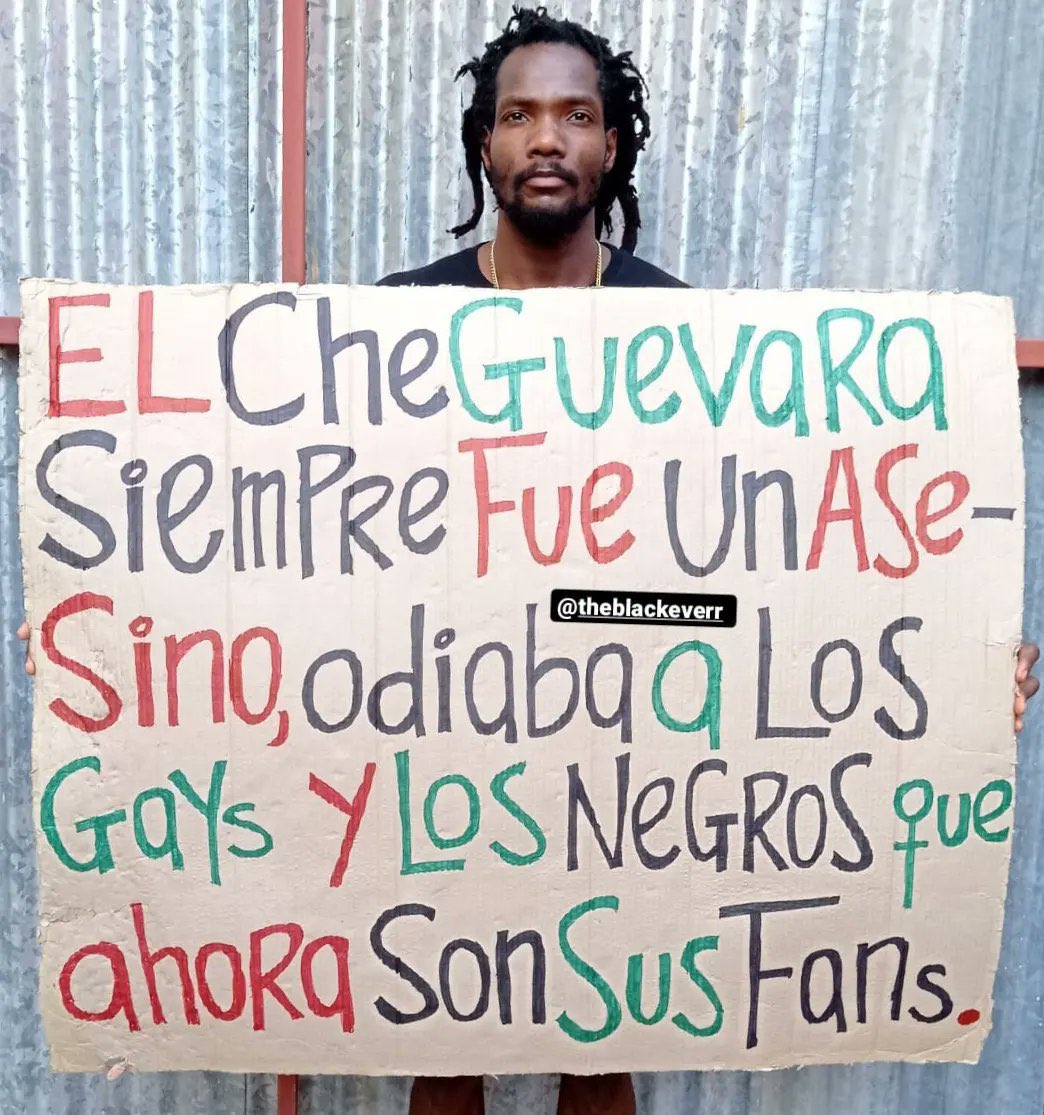 EL Che Guevara
Siempre Fue Un Ase-
@theblackeverr
Sino, odiaba a Los
Gays y Los Negros que
ahora Son Sus Fans.